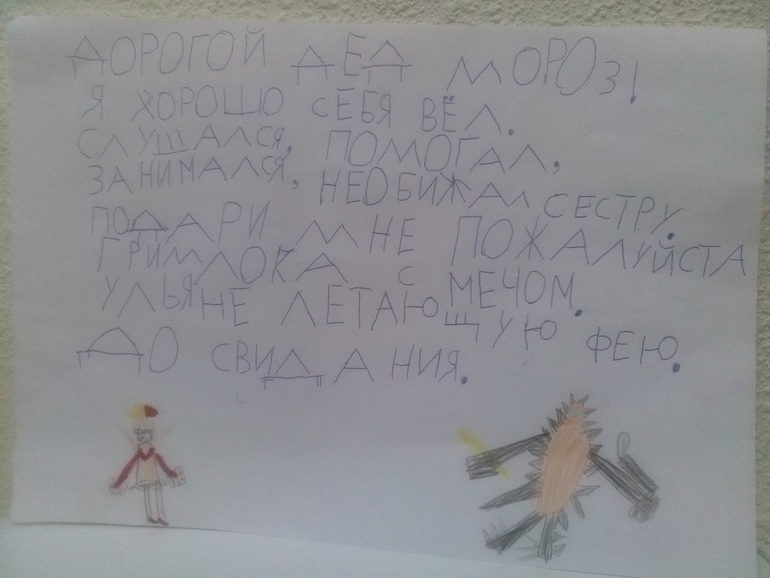 ДОРОГОЙ ДЕД МОРОЗ!
Я ХОРОШО СЕБЯ ВЁЛ.
СЛУШАЛСЯ, ПОМОГАЛ,
ЗАНИМАЛСЯ, НЕОБИЖАЛ СЕСТРУ.
ПОДАРИ МНЕ ПОЖАЛУЙСТА
ГРИМЛОКА С МЕЧОМ.
УЛЬЯНЕ ЛЕТАЮЩУЮ ФЕЮ.
ДО СВИДАНИЯ.